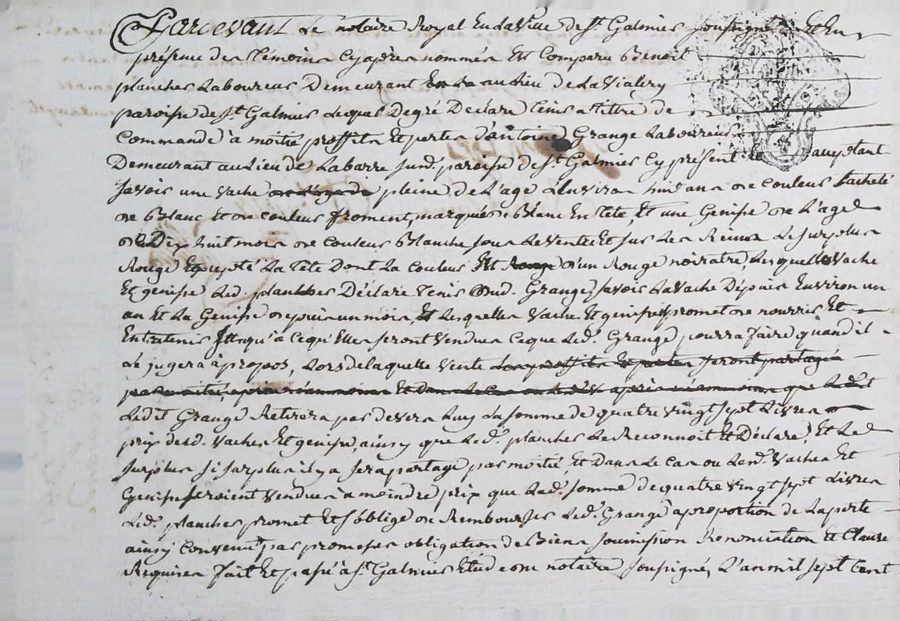 Pardevant Le notaire Royal En la ville de St. Galmier soussigné Et En
présence des témoins Cyaprès nommés Est Comparu Benoit
planches Laboureur Demeurant au Lieu de La Vialery
paroisse de St. Galmier Lequel De gré Déclare tenir a titre de
Commande à moitié proffits Et pertes d'antoine Grange Laboureur
Demeurant au Lieu de Labarre Sud. paroisse de St. Galmier Cy présent Et acceptant
Savoir une Vache pleine de L'age d'Environ huit ans de Couleur tacheté
de Blanc Et de couleur froment, marquée Blanc En tête, Et une Genisse de L'age
de Dix huit mois de Couleur Blanche Sous Le Ventre Et Sur Les Reins Le Surplus
Rouge Excepté La tête Dont La Couleur Est d'un Rouge noiratre, Lesquelles Vache
Et genisse Led. planches Déclare tenir dud. Grange, Savoir La Vache Depuis Environ un
an Et La Genisse depuis un mois, Lesquelles Vache Et genisse promet de nourrir Et
Entretenir Jusqu'à Ce qu'Elles Seront Vendues Ce que Led. Grange pourra faire quand il
Le jugera à propos, Lors de laquelle Vente Les proffits Et pertes Seront partagés
par moitié
Ledit Grange Retirera par devers Luy La Somme de quatre Vingt Sept Livres
prix desd. Vaches Et genisse, ainsy que Led. planches Le Reconnoit Et Déclare, Et Le
Surplus Si Surplus il y a Sera partagé par moitié Et Dans Le Cas ou Lesd. Vaches Et
Genisse Seroient Vendues à moindre prix que Lad. Somme de quatre Vingt Sept Livres
Led. planches promet Et S'oblige de Rembourser Led. Grange a proportion de La perte
ainsy Convenu par promesses obligation de Biens Soumission Renonciation Et Clause
Requises fait Et passé à St. Galmier Etude dem notaire Soussigné, L'an mil Sept Cent